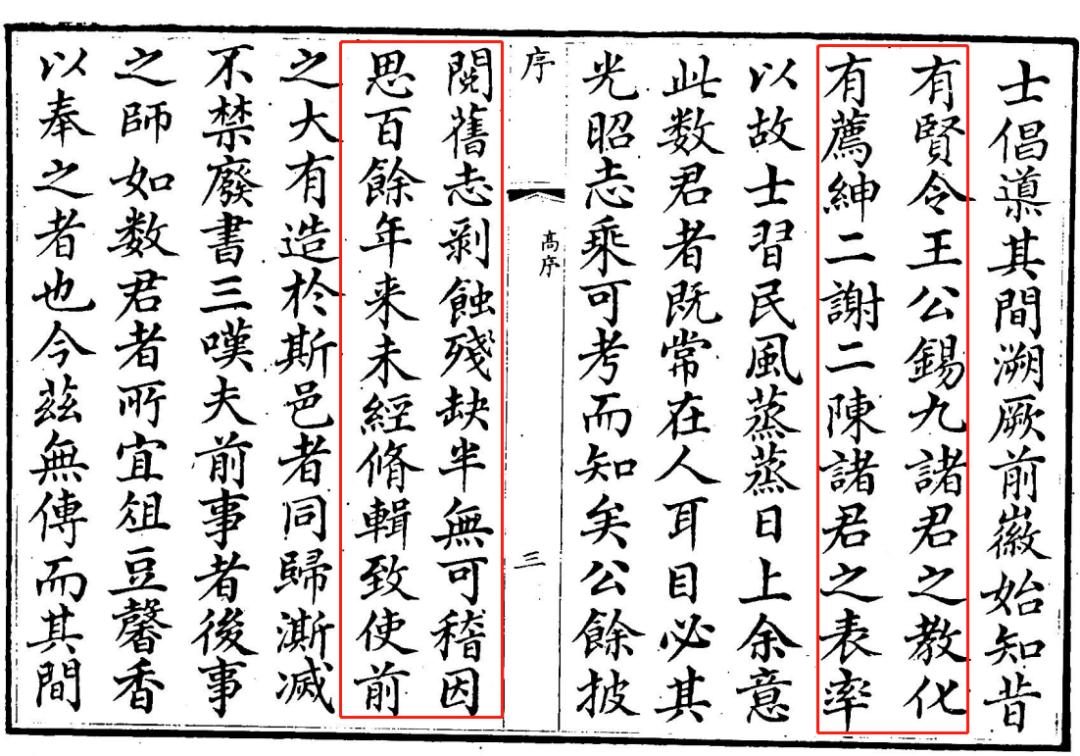 士倡導其間溯厥前徽始知昔
有賢令王公錫九諸君之教化
有薦紳二謝二陳諸君之表率
以故士習民風蒸蒸日上余意
此数君者既常在人耳目必其
光昭志乘可考而知矣公餘披
序
高序
三
閱舊志剥蝕殘缺半無可稽因
思百餘年来未經脩輯致使前
之大有造於斯邑者同歸澌滅
不禁廢書三嘆夫前事者後事
之師如数君者所宜俎豆馨香
以奉之者也今茲無傳而其間